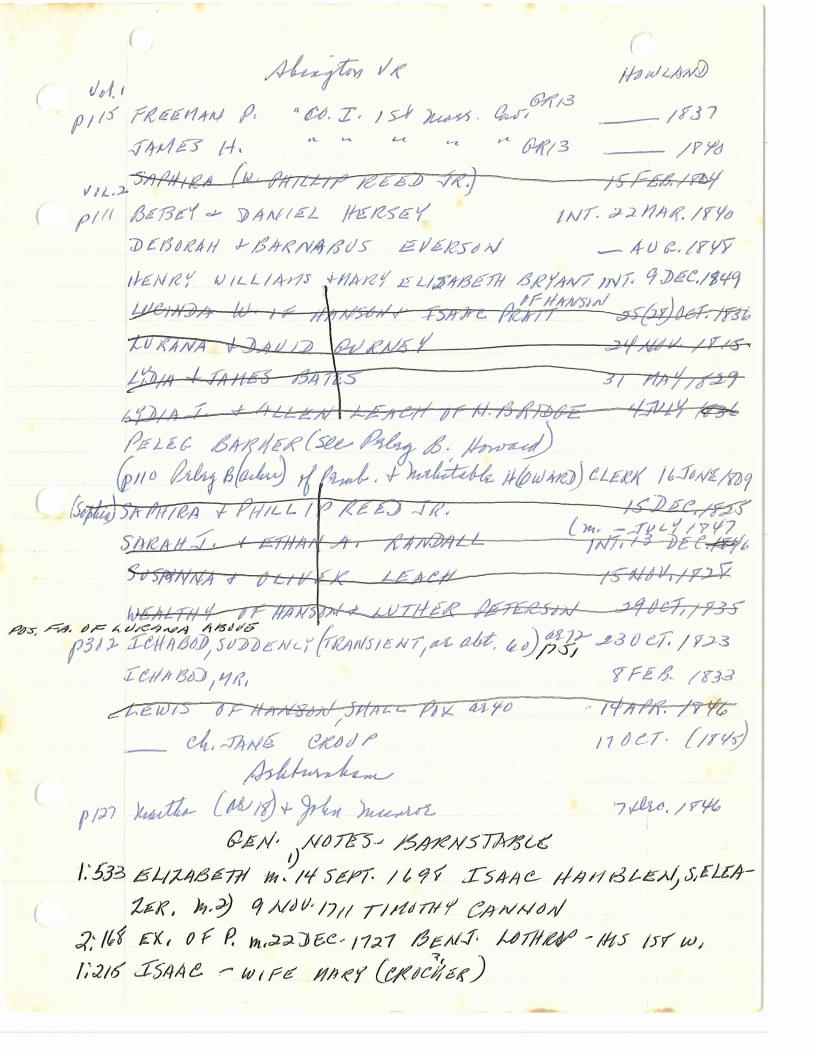 Abington VR HOWLAND
Vol. 1
p115 FREEMAN P. "CO. I. 1st Mass. Cav. GR13 ____ 1837
JAMES H. " " " " " GR13 ____ 1840
SAPHIRA (W. PHILLIP REED JR.) 15 FEB. 1804
VOL. 2
p111 BETSEY & DANIEL HERSEY INT. 22 MAR. 1840
DEBORAH & BARNABUS EVERSON — AUG. 1848
HENRY WILLIAMS & MARY ELIZABETH BRYANT INT. 9 DEC. 1849
OF HANSON
LUCINDA W. OF HANSON & ISAAC PRATT 25(28) OCT. 1836
LURANA & DAVID GURNEY 24 NOV. 1815
LYDIA & JAMES BATES 31 MAY 1829
LYDIA I. & ALLEN LEACH OF N. BRIDGE 4 JULY 1836
PELEG BARKER (see Peleg B. Howard)
(p110 Peleg B(arker) of Pemb. & Mehitable H(OWARD) CLERK 16 JUNE 1809
(Sophia) SAPHIRA & PHILLIP REED JR. 15 DEC. 1825
(m. — JULY 1847
SARAH J. & ETHAN A. RANDALL INT. 13 DEC. 1846
SUSANNA & OLIVER LEACH 15 NOV. 1828
WEALTHY OF HANSON & LUTHER PETERSON 29 OCT. 1835
POS. FA. OF LURANA ABOVE
p312 ICHABOD, SUDDENLY (TRANSIENT, ae abt. 60) 23 OCT. 1823
ICHABOD, MR. 8 FEB. 1833
LEWIS OF HANSON, SMALL POX ae 40 14 APR. 1846
____ ch. JANE CROUP 17 OCT. (1845)
Ashburnham
p127 Martha (ae 18) & John Munroe 7 Dec. 1846
GEN. NOTES - BARNSTABLE
1:533 ELIZABETH m. 1) 14 SEPT. 1698 ISAAC HAMBLEN, S. ELEA-
ZER. m. 2) 9 NOV. 1711 TIMOTHY CANNON
2:168 EX. OF P. m. 22 DEC. 1727 BENJ. LOTHROP - HIS 1ST W.
1:215 ISAAC - WIFE MARY (CROCKER)